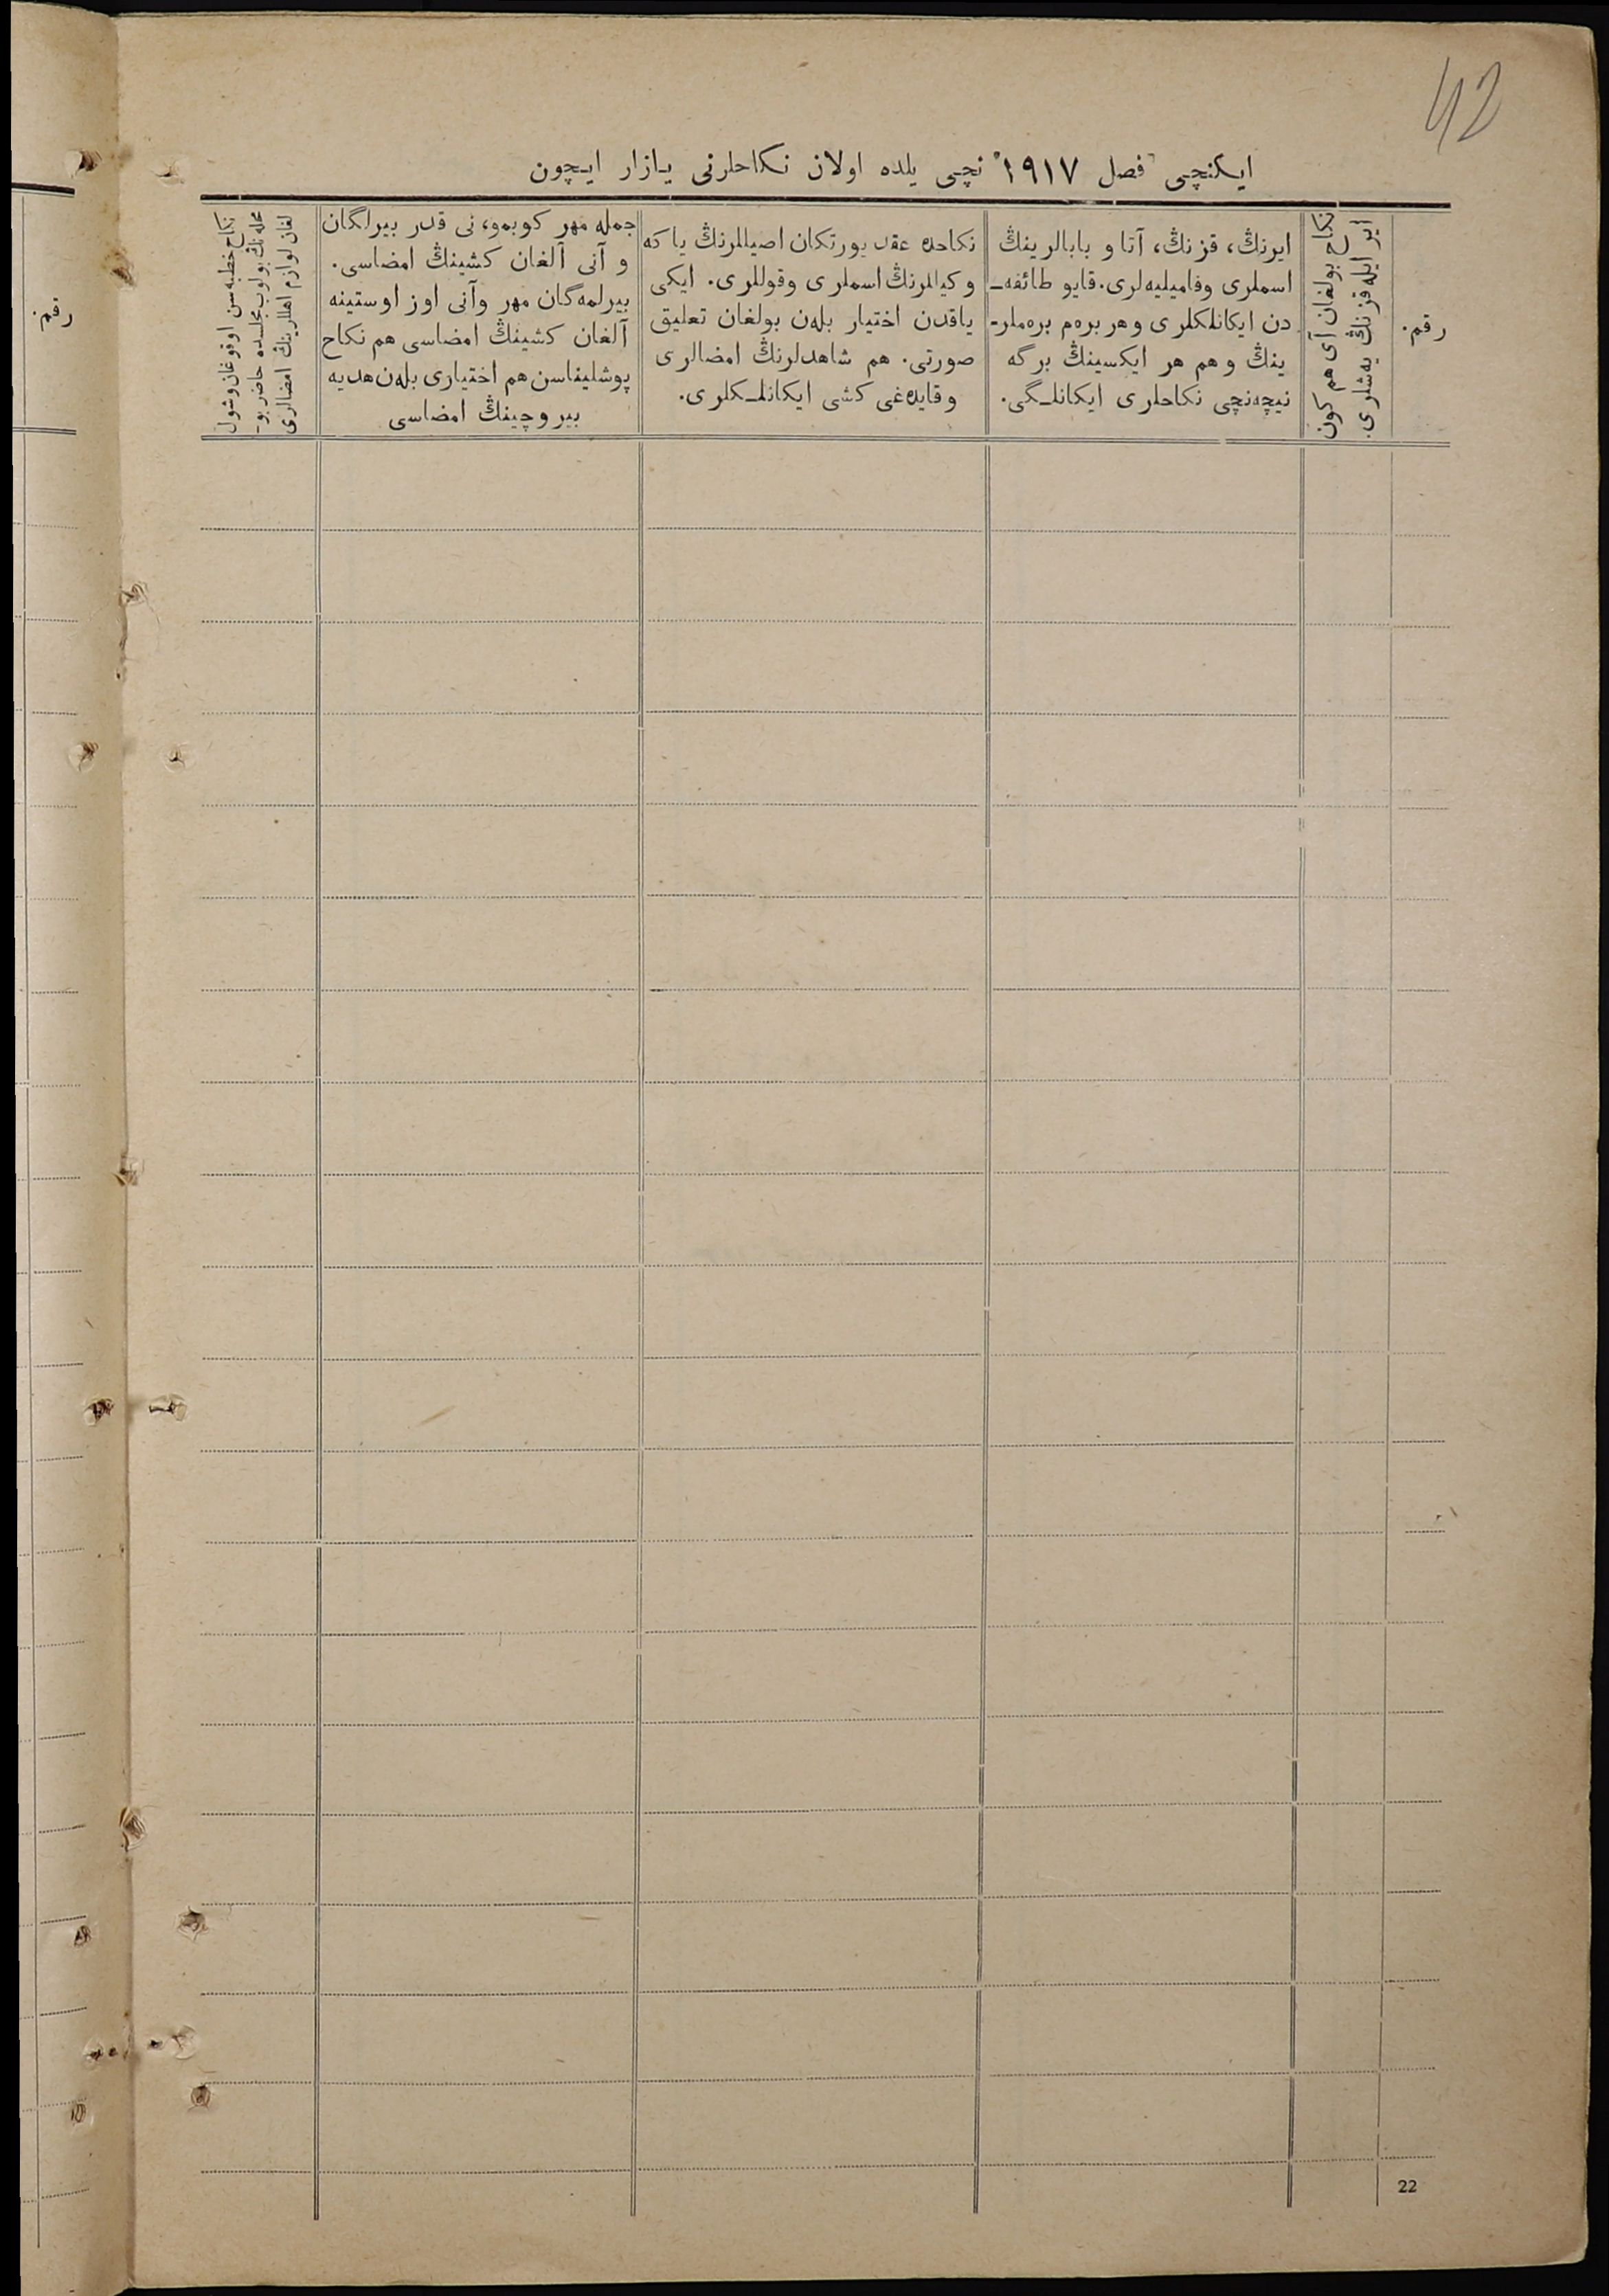 42
ایکنچی فصل ١٩١٧ نچی یلده اولان نکاحلرنی یازار ایچون
رقم.
نکاح بولغان آی هم کون
ایر ایله قزنڭ یه‌شلری.
ایرنڭ، قزنڭ، آتا و بابالرینڭ
اسملری وفامیلیه‌لری. قایو طائفه‌ـ
دن ایکانلکلری وهر بره‌م بره‌ملرـ
ینڭ وهم هر ایکسینڭ برگه
نیچه‌نچی نکاحلری ایکانلـگی.
نکاحده عقد یورتکان اصیللرنڭ یا که
وکیللرنڭ اسملری وقوللری. ایکی
یاقدن اختیار بله‌ن بولغان تعلیق
صورتی. هم شاهدلرنڭ امضالری
وقایده‌غی کشی ایکانلـکلری.
جمله مهر کوبمو، نی قدر بیرلگان
و آنی آلغان کشینڭ امضاسی.
بیرلمه‌گان مهر وآنی اوز اوستینه
آلغان کشینڭ امضاسی هم نکاح
پوشلیناسن هم اختیاری بله‌ن هدیه
بیروچینڭ امضاسی
نکاح خطبه‌سن اوقوغان وشول
محله‌نڭ بولوب مجلسده حاضر بوـ
لغان لوازم اهللارینڭ امضالری
رقم.
22